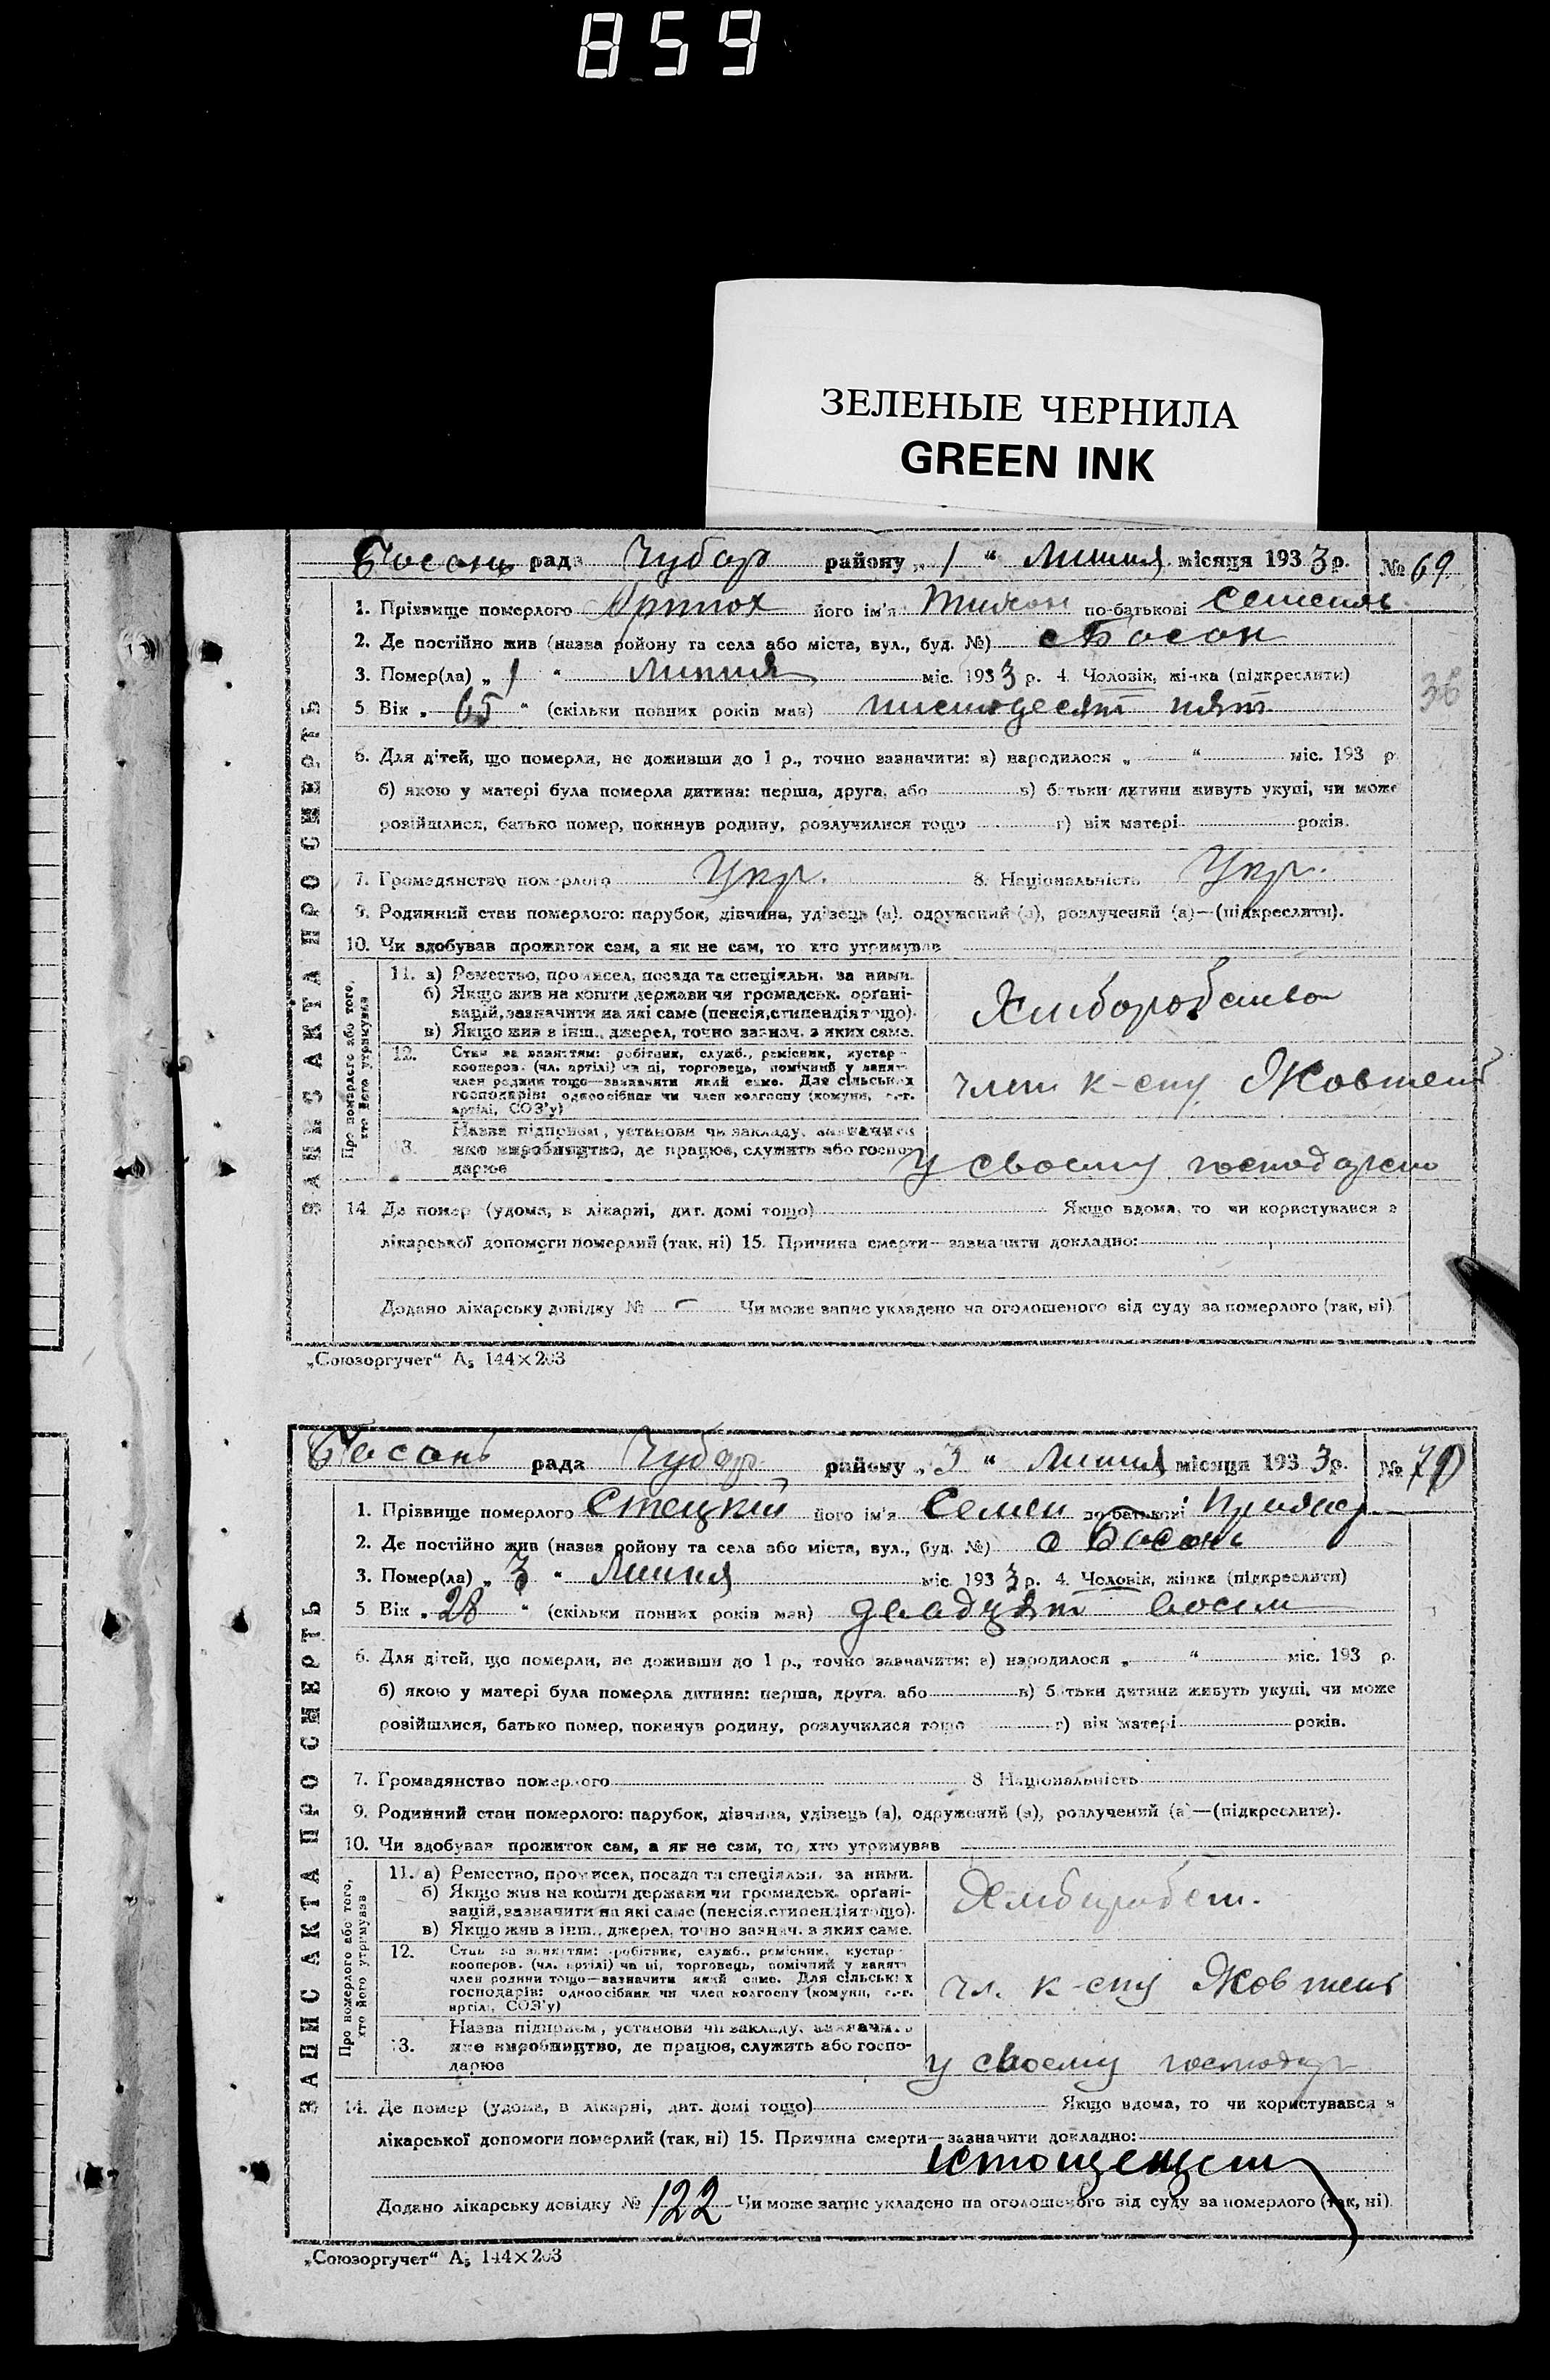 859
ЗЕЛЕНЫЕ ЧЕРНИЛА
GREEN INK
Босонь рада Чубар району „1“ Липня місяця 1933 р. № 69
1. Прізвище померлого його ім'я Тихон по-батькові Семенов
2. Де постійно жив (назва району та села або міста, вул., буд. №) с Босон
3. Помер(ла) „1“ Липня міс. 1933 р. 4. Чоловік, жінка (підкреслити)
5. Вік „65“ (скільки повних років мав) шистдесят пят
36
6. Для дітей, що померли, не доживши до 1 р., точно зазначити: а) народилося „ “ міс. 193 р.
б) якою у матері була померла дитина: перша, друга, або в) батьки дитини живуть укупі, чи може
розійшлися, батько помер, покинув родину, розлучилися тощо г) вік матері років.
7. Громадянство померлого Укр. 8. Національність Укр.
9. Родинний стан померлого: парубок, дівчина, удівець (а), одружений (а), розлучений (а)—(підкреслити).
10. Чи здобував прожиток сам, а як не сам, то хто утримував
ЗАПИС АКТА ПРО СМЕРТЬ
Про померлого або того,
хто його утримував
11. а) Ремество, промисел, посада та спеціяльн. за ними.
б) Якщо жив на кошти держави чи громадськ. органі-
зацій, зазначити на які саме (пенсія, стипендія тощо).
в) Якщо жив з інш. джерел, точно зазнач. з яких саме.
Хлиборобство
12. Стан за заняттям: робітник, служб., ремісник, кустар-
кооперов. (чл. артілі) чи ні, торговець, помічний у занятт.
член родини тощо—зазначити який саме. Для сільських
господарів: одноосібник чи член колгоспу (комуни, с.-г.
артілі, СОЗ'у)
член к-спу Жовтень
13. Назва підприєм., установи чи закладу, зазначити
яке виробництво, де працює, служить або госпо-
дарює
у своему господарст
14. Де помер (удома, в лікарні, дит. домі тощо) Якщо вдома, то чи користувався з
лікарської допомоги померлий (так, ні) 15. Причина смерти—зазначити докладно:
Додано лікарську довідку № — Чи може запис укладено на оголошеного від суду за померлого (так, ні)
„Союзоргучет“ А5 144×203
Босонь рада Чубар району „3“ Липня місяця 1933 р. № 70
1. Прізвище померлого Стецкий його ім'я Семен по-батькові
2. Де постійно жив (назва району та села або міста, вул., буд. №) с Босонь
3. Помер(ла) „3“ Липня міс. 1933 р. 4. Чоловік, жінка (підкреслити)
5. Вік „28“ (скільки повних років мав) двадцят восим
6. Для дітей, що померли, не доживши до 1 р., точно зазначити: а) народилося „ “ міс. 193 р.
б) якою у матері була померла дитина: перша, друга, або в) батьки дитини живуть укупі, чи може
розійшлися, батько помер, покинув родину, розлучилися тощо г) вік матері років.
7. Громадянство померлого 8. Національність
9. Родинний стан померлого: парубок, дівчина, удівець (а), одружений (а), розлучений (а)—(підкреслити).
10. Чи здобував прожиток сам, а як не сам, то хто утримував
ЗАПИС АКТА ПРО СМЕРТЬ
Про померлого або того,
хто його утримував
11. а) Ремество, промисел, посада та спеціяльн. за ними.
б) Якщо жив на кошти держави чи громадськ. органі-
зацій, зазначити на які саме (пенсія, стипендія тощо).
в) Якщо жив з інш. джерел, точно зазнач. з яких саме.
Хлиборобст.
12. Стан за заняттям: робітник, служб., ремісник, кустар-
кооперов. (чл. артілі) чи ні, торговець, помічний у занятт.
член родини тощо—зазначити який саме. Для сільських
господарів: одноосібник чи член колгоспу (комуни, с.-г.
артілі, СОЗ'у)
чл. к-спу Жовтень
13. Назва підприєм., установи чи закладу, зазначити
яке виробництво, де працює, служить або госпо-
дарює
у своему господар
14. Де помер (удома, в лікарні, дит. домі тощо) Якщо вдома, то чи користувався з
лікарської допомоги померлий (так, ні) 15. Причина смерти—зазначити докладно:
истощение
Додано лікарську довідку № 122 Чи може запис укладено на оголошеного від суду за померлого (так, ні)
„Союзоргучет“ А5 144×203